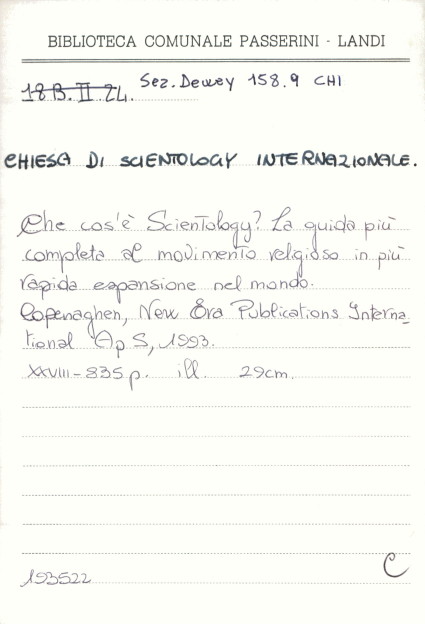 BIBLIOTECA COMUNALE PASSERINI - LANDI
18B. II 24. Sez. Dewey 158.9 CHI
CHIESA DI SCIENTOLOGY INTERNAZIONALE.
Che cos'è Scientology? La guida più
completa al movimento religioso in più
rapida espansione nel mondo.
Copenaghen, New Era Publications Interna-
tional ApS, 1993.
XXVIII-835 p. ill. 29cm.
193522
C